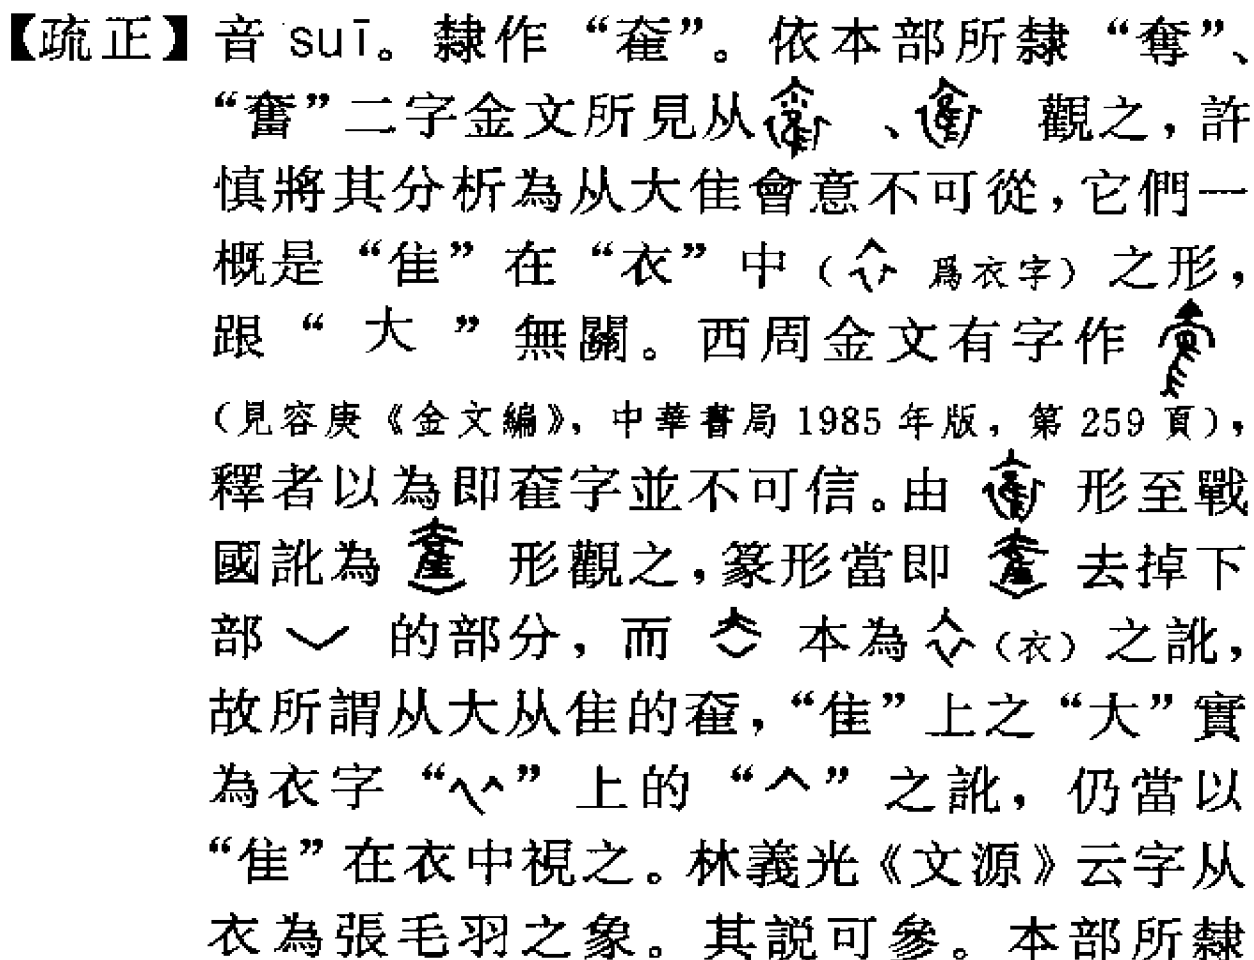 【疏正】音 suī。隸作“奞”。依本部所隸“奪”、
“奮”二字金文所見从 、 觀之，許
慎將其分析為从大隹會意不可從，它們一
概是“隹”在“衣”中（ 爲衣字）之形，
跟“大”無關。西周金文有字作
（見容庚《金文編》，中華書局 1985 年版，第 259 頁），
釋者以為即奞字並不可信。由 形至戰
國訛為 形觀之，篆形當即 去掉下
部 的部分，而 本為 （衣）之訛，
故所謂从大从隹的奞，“隹”上之“大”實
為衣字“ ”上的“ ”之訛，仍當以
“隹”在衣中視之。林義光《文源》云字从
衣為張毛羽之象。其説可參。本部所隸